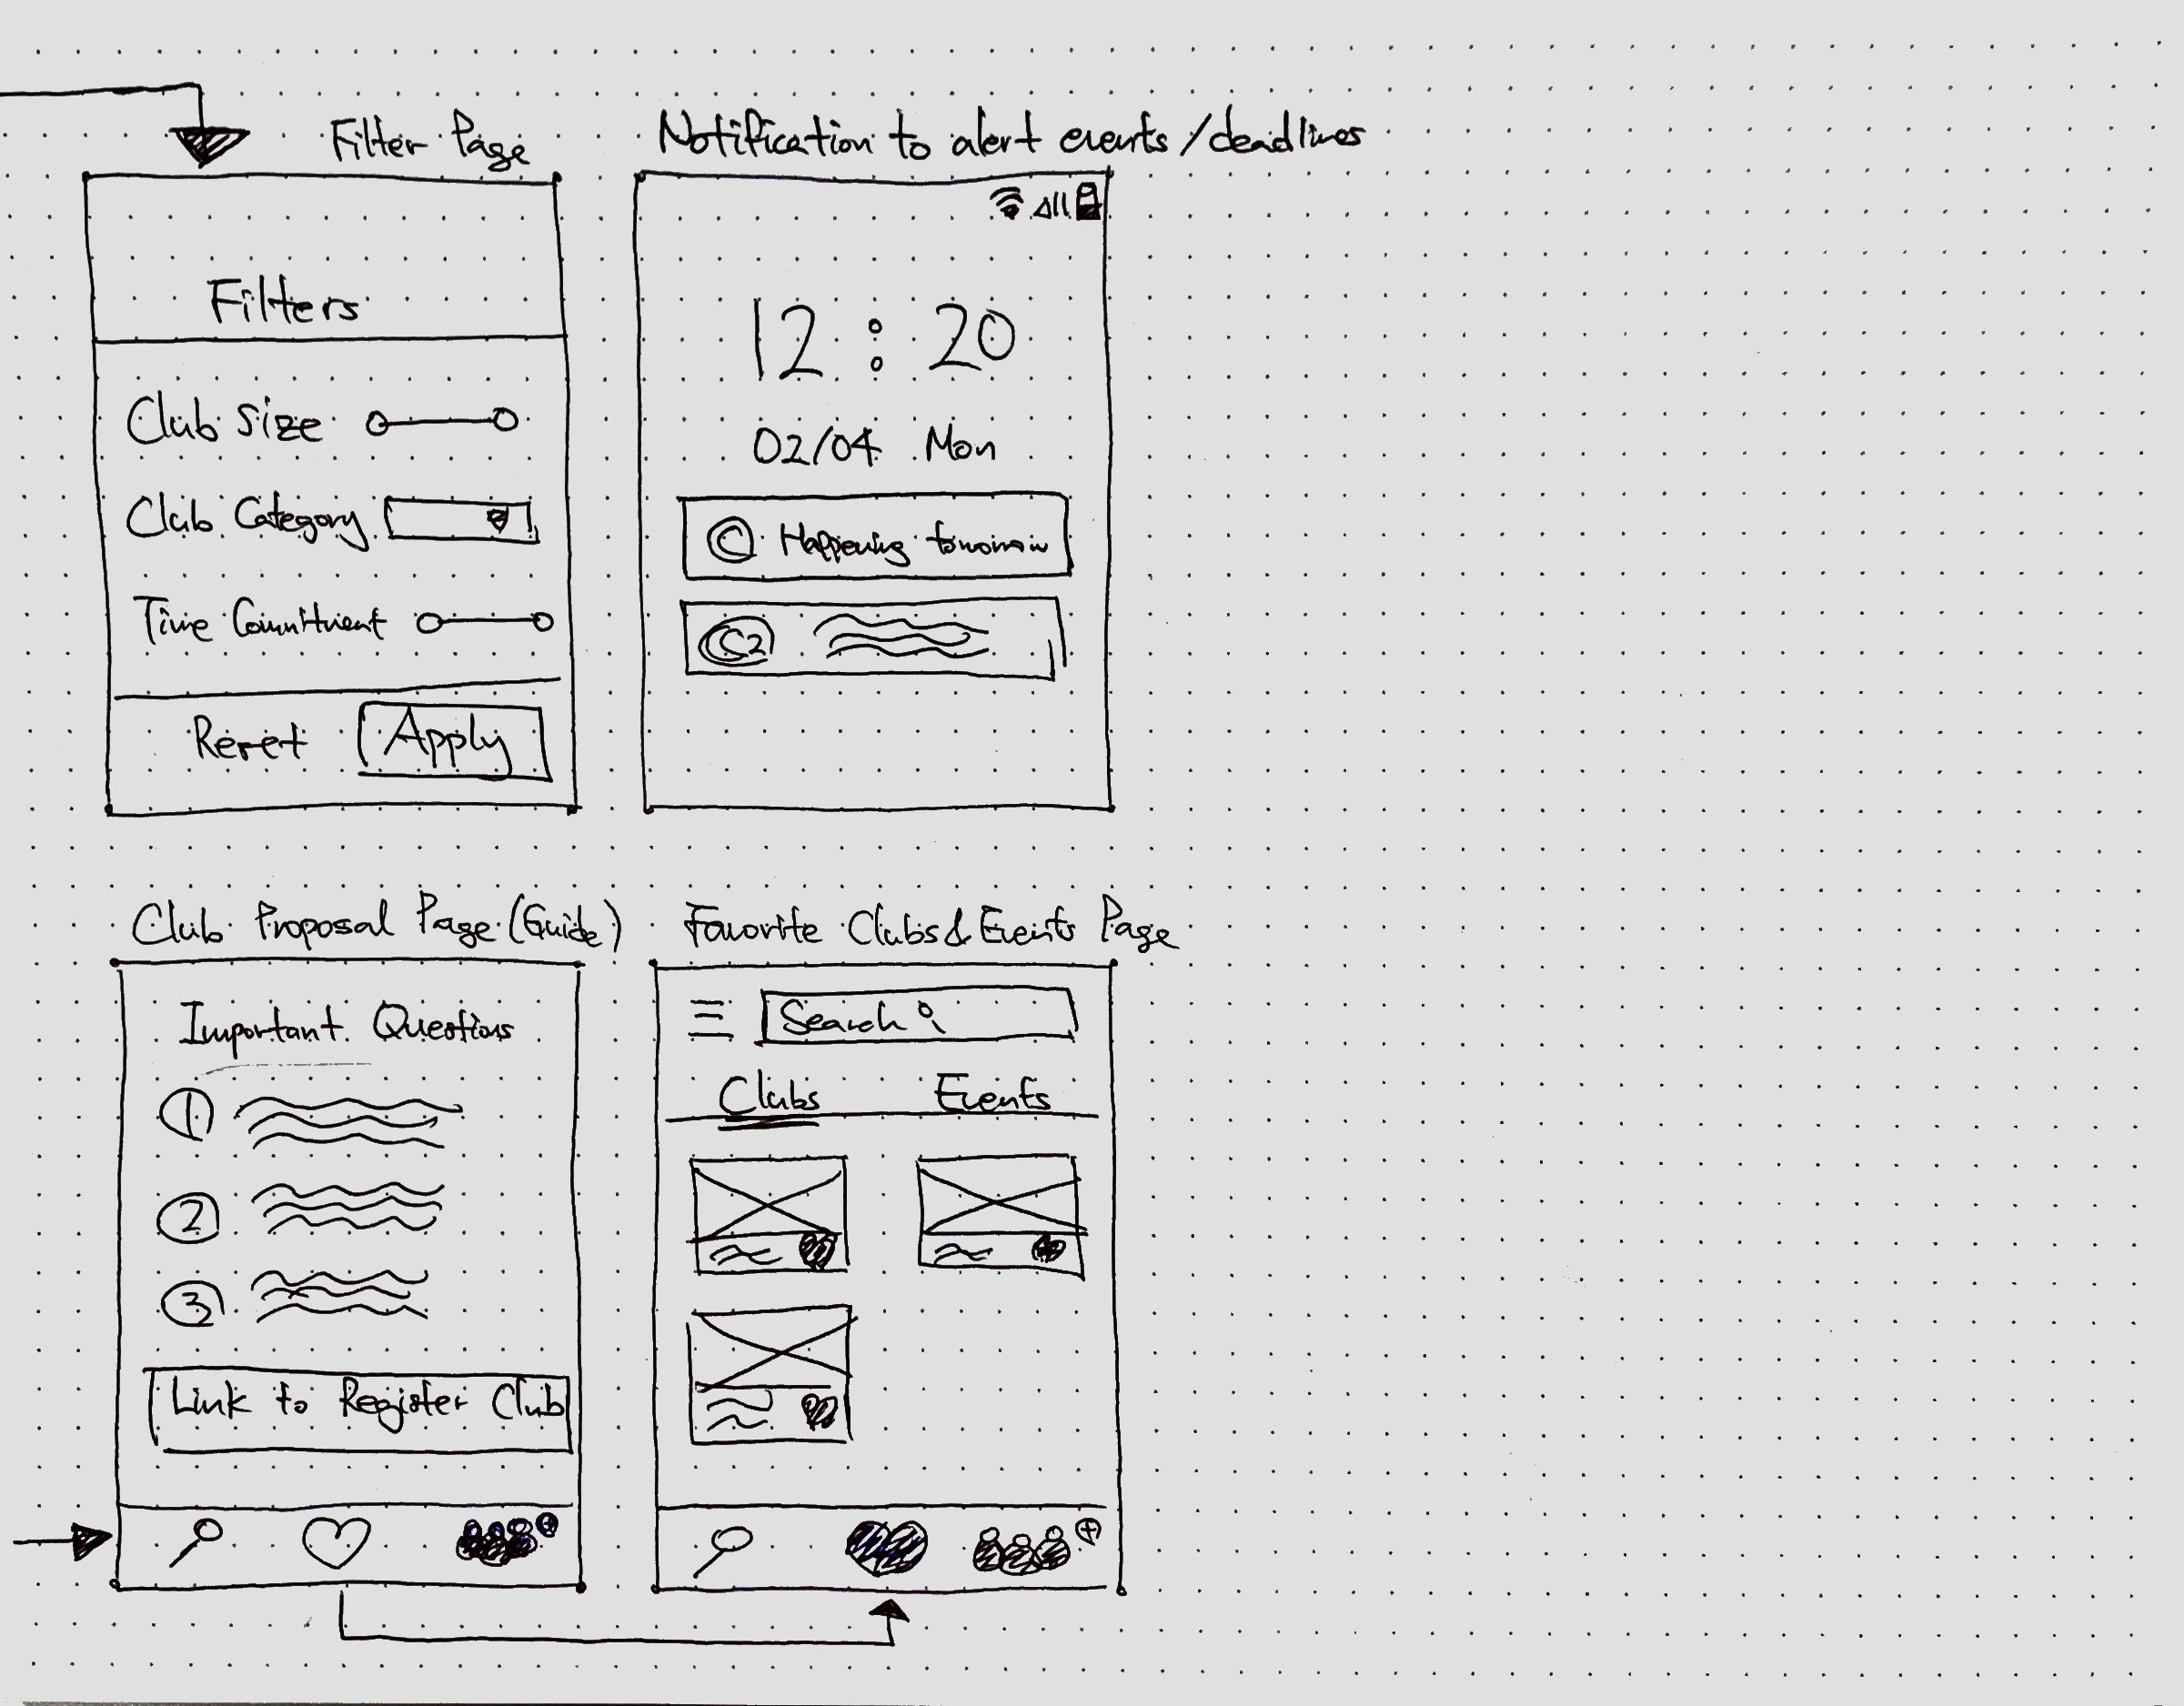 Filter Page
Filters
Club Size
Club Category
Time Commitment
Reset Apply
Notification to alert events/deadlines
12:20
02/04 Mon
C Happening tomorrow
C2
Club Proposal Page (Guide)
Important Questions
1
2
3
Link to Register Club
Favorite Clubs & Events Page
Search
Clubs Events